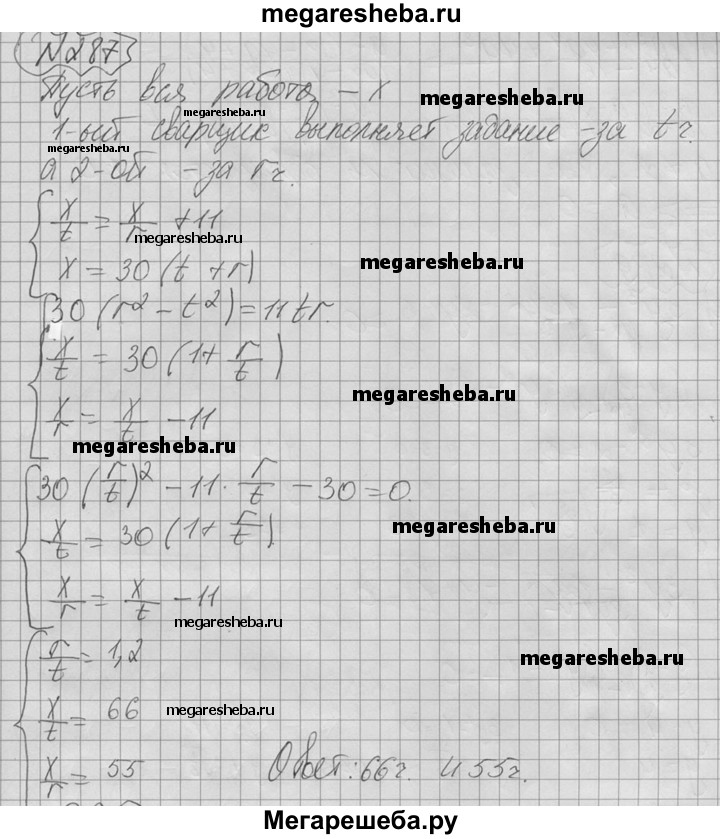 megaresheba.ru
N287
Пусть вся работа – x
megaresheba.ru
megaresheba.ru
1-ый сварщик выполняет задание – за t ч.
megaresheba.ru
а 2-ой – за r ч.
x/t = x/r + 11
megaresheba.ru
x = 30 (t + r)
megaresheba.ru
30 (r² – t²) = 11tr.
x/t = 30 (1 + r/t)
megaresheba.ru
x/r = x/t – 11
megaresheba.ru
30 (r/t)² – 11 · r/t – 30 = 0.
x/t = 30 (1 + r/t)
megaresheba.ru
x/r = x/t – 11
megaresheba.ru
r/t = 1,2
megaresheba.ru
x/t = 66
megaresheba.ru
x/r = 55 Ответ: 66 ч. и 55 ч.
Мегарешеба.ру